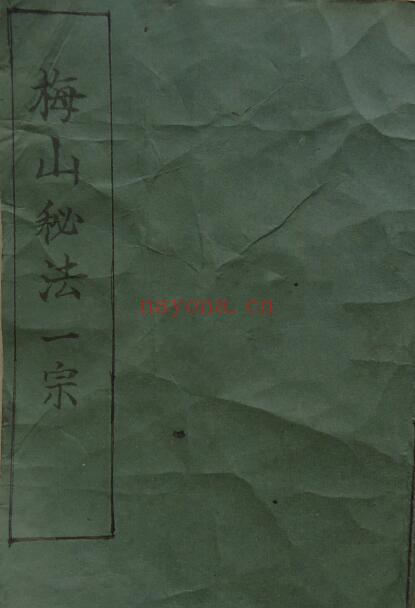 梅山秘法一宗
nayona.cn